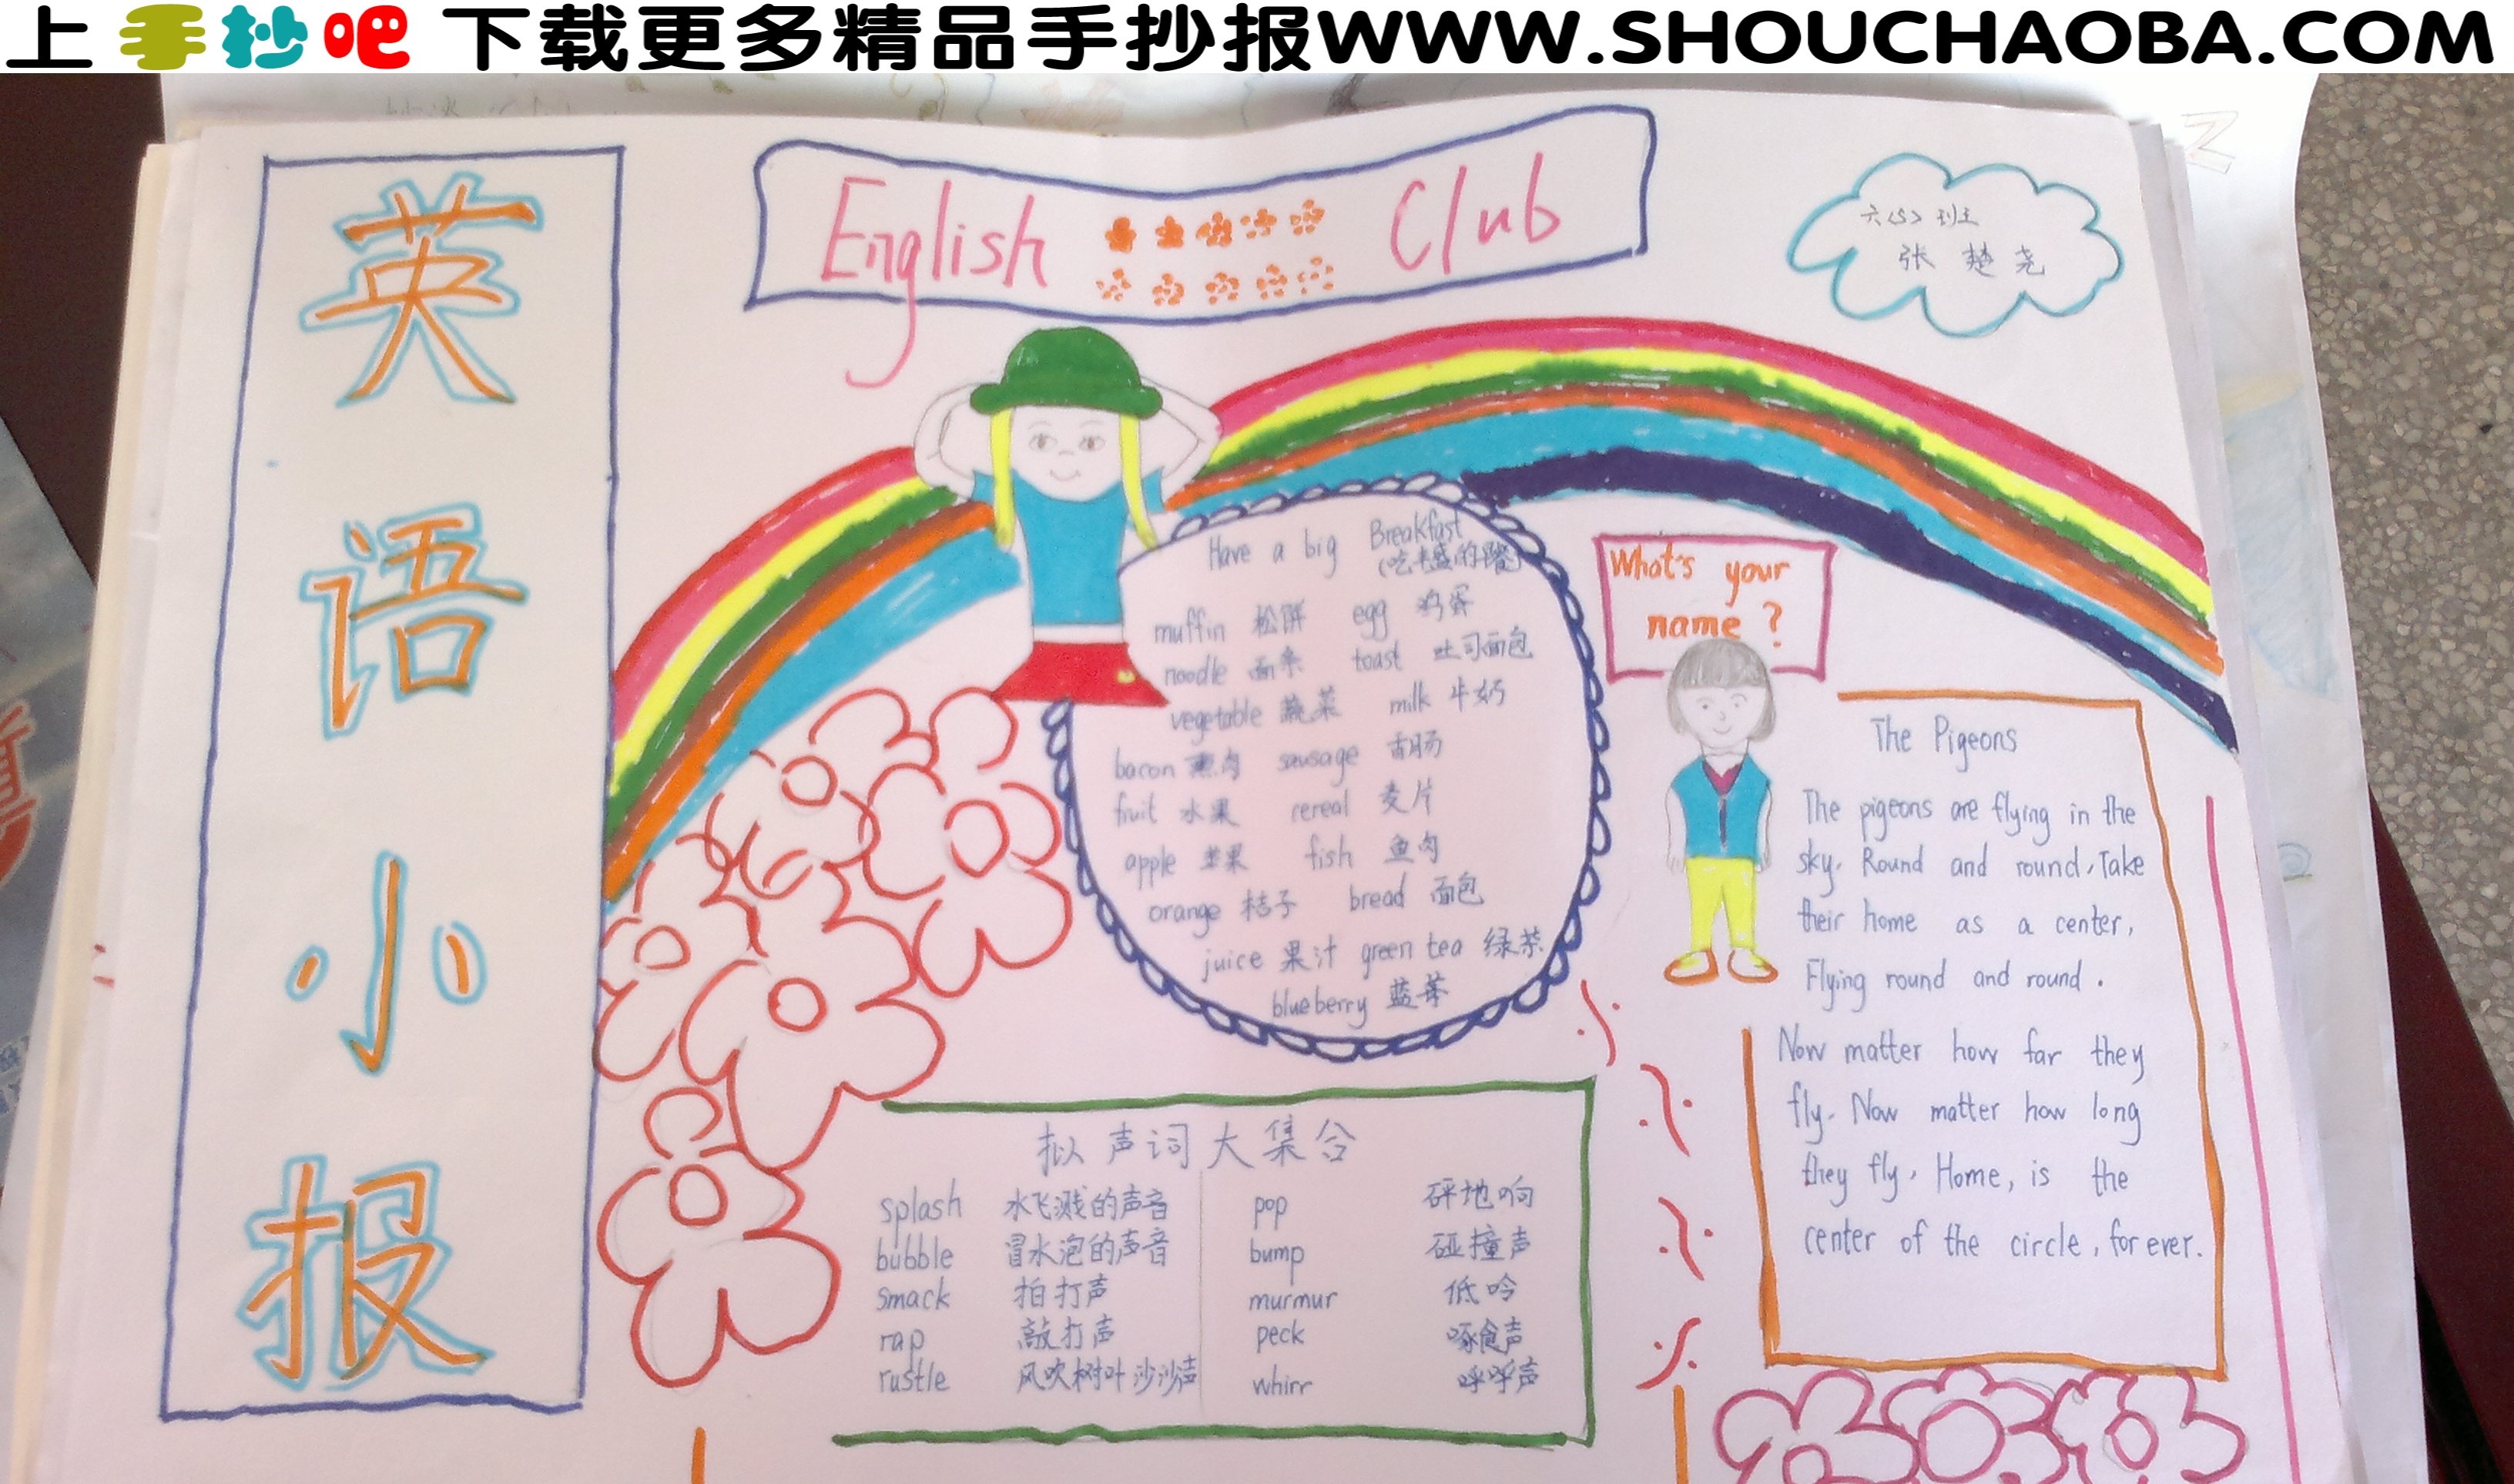 上手抄吧 下载更多精品手抄报WWW.SHOUCHAOBA.COM
英
语
小
报
English Club
六〈5〉班
张楚尧
Have a big Breakfast
muffin 松饼 egg 鸡蛋
noodle 面条 toast 吐司面包
vegetable 蔬菜 milk 牛奶
bacon 熏肉 sausage 香肠
fruit 水果 rereal 麦片
apple 苹果 fish 鱼肉
orange 桔子 bread 面包
juice 果汁 green tea 绿茶
blueberry 蓝莓
What's your
name?
The Pigeons
The pigeons are flying in the
sky. Round and round, Take
their home as a center,
Flying round and round.
Now matter how far they
fly. Now matter how long
they fly, Home, is the
center of the circle, for ever.
拟声词大集合
splash 水飞溅的声音 pop 砰地响
bubble 冒水泡的声音 bump 碰撞声
smack 拍打声 murmur 低吟
rap 敲打声 peck 啄食声
rustle 风吹树叶沙沙声 whirr 呼呼声